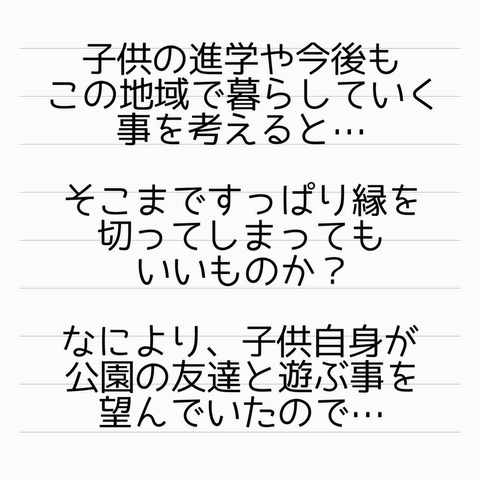 子供の進学や今後も
この地域で暮らしていく
事を考えると…
そこまですっぱり縁を
切ってしまっても
いいものか？
なにより、子供自身が
公園の友達と遊ぶ事を
望んでいたので…